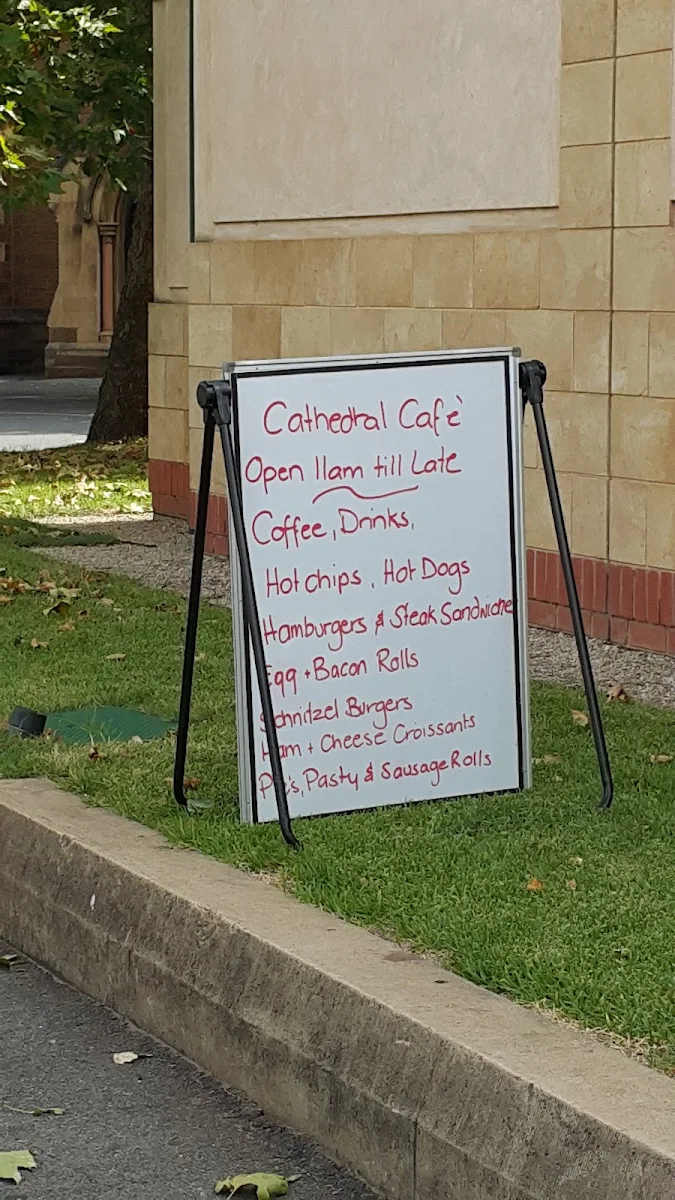 Cathedral Cafè
Open 11am till Late
Coffee, Drinks,
Hot chips, Hot Dogs
Hamburgers & Steak Sandwiche
Egg + Bacon Rolls
Schnitzel Burgers
Ham + Cheese Croissants
Pie's, Pasty & Sausage Rolls